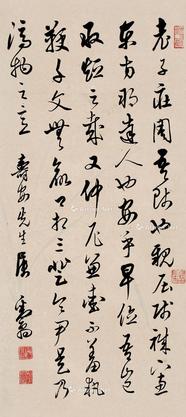 老子莊周吾之師也親居賤職柳下惠
東方朔達人也安乎卑位吾豈
敢短之哉又仲尼兼愛不羞執
鞭子文無欲卿相三登令尹是乃
濟物之意
壽安先生屬